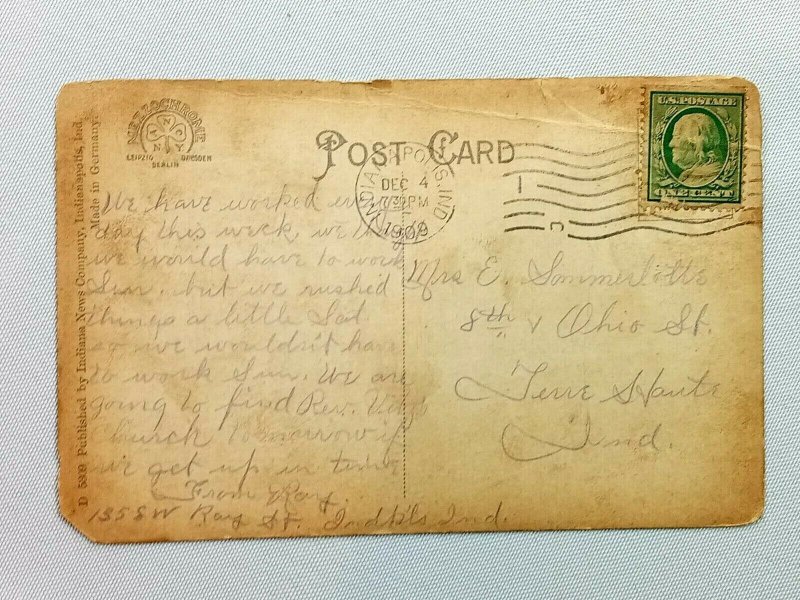 MEZZOCHROME
ANN OY
LEIPZIG DRESDEN
BERLIN
POST CARD
INDIANAPOLIS, IND.
DEC 4
7 30 PM
1909
U.S. POSTAGE
ONE CENT
D 5209 Published by Indiana News Company, Indianapolis, Ind.
Made in Germany.
We have worked every
day this week we thot
we would have to work
Sun. but we rushed
things a little Sat
so we wouldn't have
to work Sun. We are
going to find Rev.
church tomorrow if
we get up in time
From Ray.
1355 W Ray St. Indpls Ind.
Mrs E. Sommerlotte
8th & Ohio St.
Terre Haute
Ind.